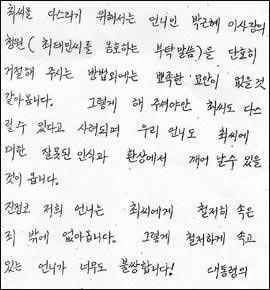 최씨을 다스리기 위해서는 언니인 박근혜 이사장의
청원( 최태민씨를 옹호하는 부탁말씀)을 단호히
거절해 주시는 방법외에는 뾰족한 묘안이 없을것
같아옵니다. 그렇게 해 주셔야만 최씨도 다스
릴수 있다고 사려되며 우리 언니도 최씨에
대한 잘못된 인식과 환상에서 깨어날수 있을
것이 옵니다.
진정코 저희 언니는 최씨에게 철저히 속은
죄 밖에 없아옵니다. 그렇게 철저하게 속고
있는 언니가 너무도 불쌍합니다! 대통령의